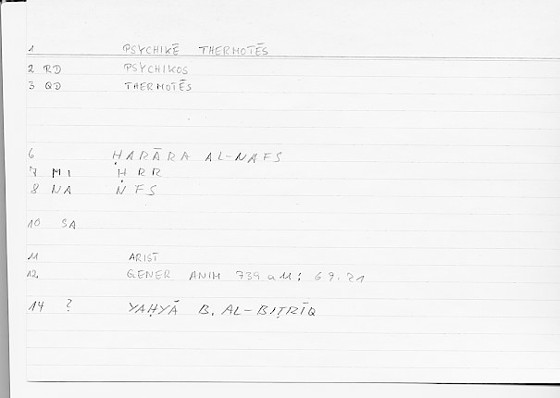 1 PSYCHIKĒ THERMOTĒS
2 RD PSYCHIKOS
3 QD THERMOTĒS
6 ḤARĀRA AL-NAFS
7 MI ḤRR
8 NA NFS
10 SA
11 ARIST
12. GENER ANIM 739 a 11: 69.21
14 ? YAḤYĀ B. AL-BIṬRĪQ